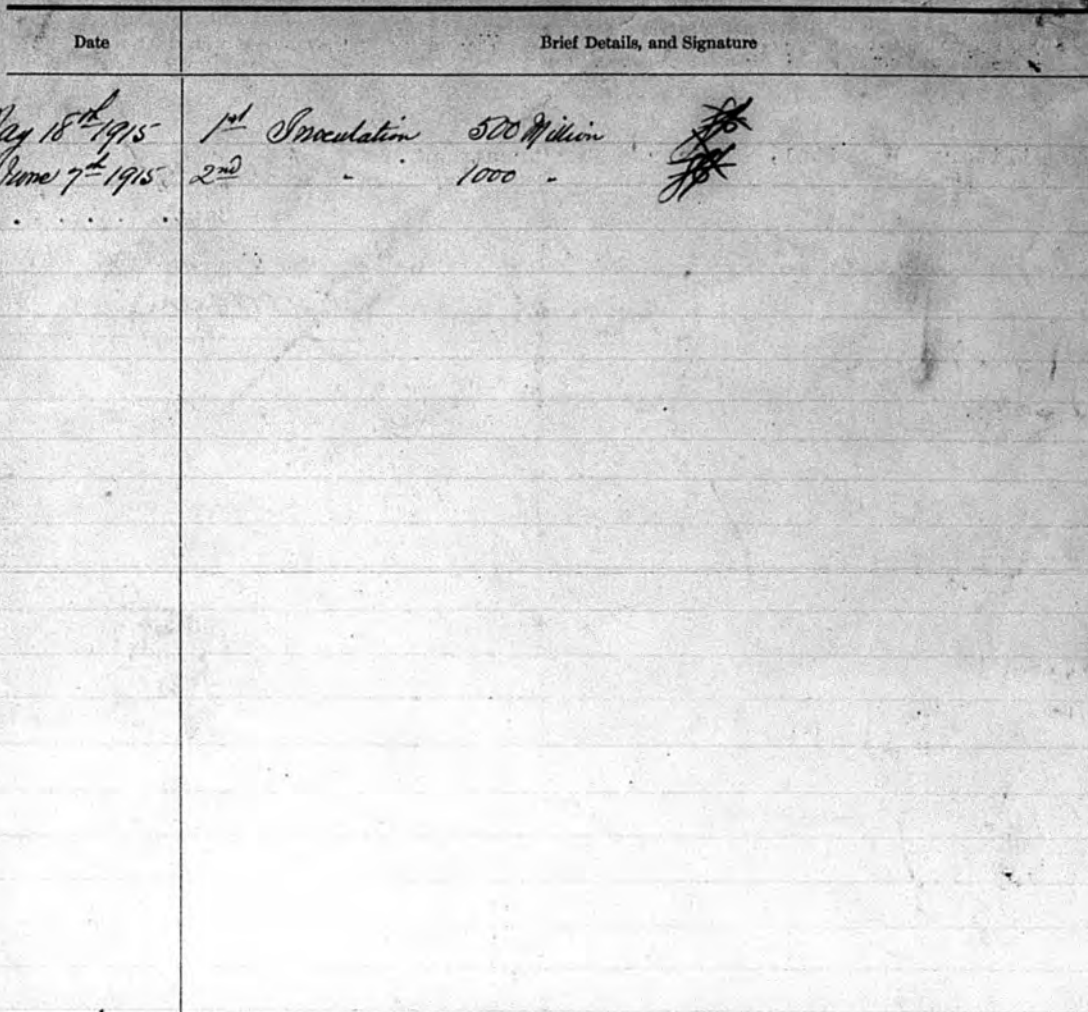 Date Brief Details, and Signature
May 18th 1915 1st Inoculation 500 Million
June 7th 1915 2nd " 1000 "